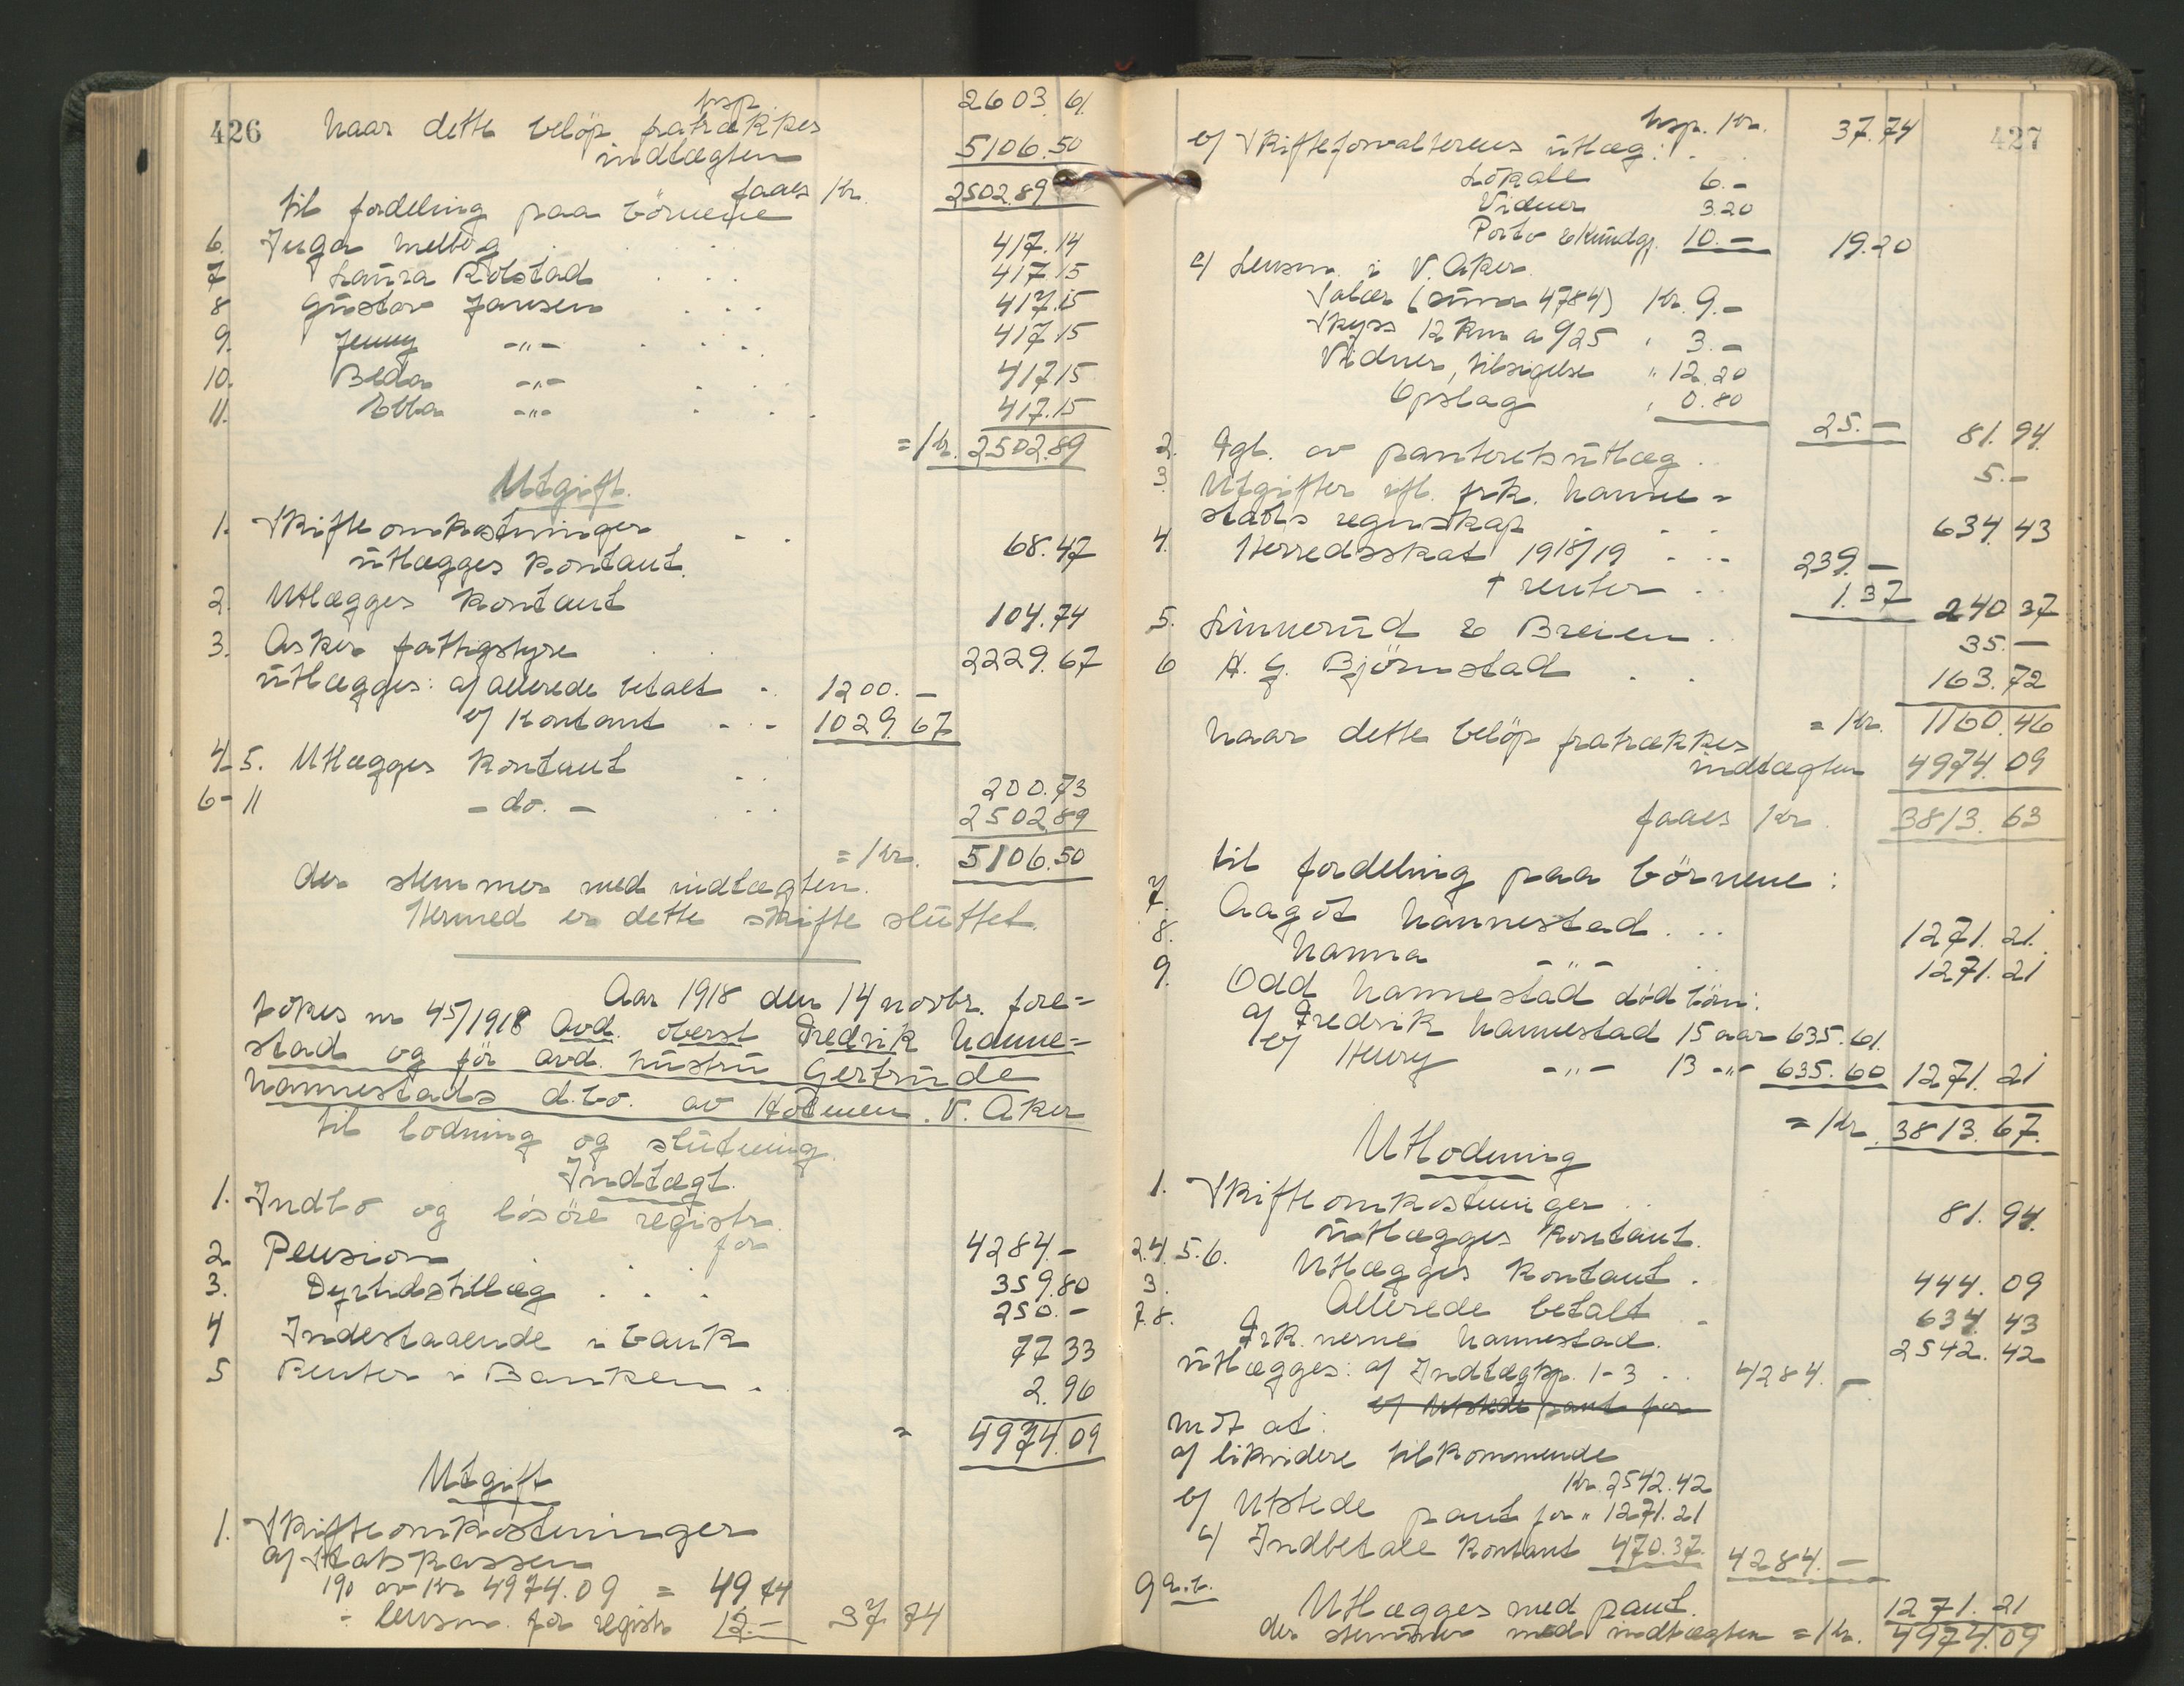 426
trsp. 2603.61.
naar dette belöp fratrækkes
indtægten 5106.50
faaes Kr. 2502.89
til fordeling paa börnene
6. Inga Melbøg . . . 417.14
7 Laura Rolstad . . . 417.15
8 Gustav Jansen . . . 417.15
9. Jenny -"- . . . 417.15
10. Beda -"- . . . 417.15
11. Ebba -"- . . . 417.15
= Kr. 2502.89
Utgift.
1. Skifteomkostninger . . 68.47
utlægges kontant.
2. Utlægges kontant 104.74
3. Asker fattigstyre . . 2229.67
utlægges: a/ allerede betalt . 1200.—
b/ kontant . . - 1029.67
4-5. Utlægges kontant . . 200.73
6-11 - do. - . . 2502.89
= Kr. 5106.50
der stemmer med indtægten.
Hermed er dette skifte sluttet.
Aar 1918 den 14 novbr. fore=
tokes nr 45/1918 Avd. oberst Fredrik Hanne=
stad og för avd. hustru Gertrude
Hannestads d.bo. av Holmen. V. Aker
til lodning og slutning.
Indtægt.
1. Indbo og lösöre registr.
for 4284.-
2. Pension . . . 359.80
3. Dyrtidstillæg . . . 250.-
4 Indestaaende i bank 77 33
5 Renter i Banken . 2.96
= 4974.09
Utgift
1. Skifteomkostninger
a/ Statskassen
1% av Kr 4974.09 = 49 74
- lensm. for registr. 12.- 37 74
427
trsp. Kr. 37.74
b/ Skifteforvalterens utlæg: . .
Lokale 6.-
Vidner 3.20
Porto & Kundgj. 10.- 19.20
c/ Lensm. i V. Aker.
Salær (summa 4784) Kr. 9.-
Skyss 12 km a 0/25 " 3.-
Vidner, tilsigelse " 12.20
Opslag " 0.80
25.- 81.94.
2. Tgl. av panteretsutlæg . . 5.-
3. Utgifter ifl. frk. Hanne=
stads regnskap . . . 634.43
4. Herredsskat 1918/19 . . . 239.-
+ renter . . 1.37 240 37
5. Linnerud & Breien . 35.-
6 H. G. Björnstad . . 163.72
= Kr. 1160.46
naar dette belöp fratrækkes
indtægten 4974.09
faaes Kr. 3813.63
til fordeling paa börnene:
7. Aagot Hannestad . . . 1271.21.
8. Hanna -"- . . 1271.21
9. Odd Hannestad död börn:
a/ Fredrik Hannestad 15 aar 635.61.
b/ Henry -"- 13 -"- 635.60 1271.21
= Kr. 3813.67.
Utlodning
1. Skifteomkostninger . . 81.94.
utlægges kontant.
2.4.5.6. Utlægges kontant . 444.09
3. Allerede betalt - 634.43
7.8. Frk.nerne Hannestad. 2542.42
utlægges: a/ Indtægtsp. 1-3 . . 4284.-
b/ Utstede pant for
mot at:
a/ likvidere tilkommende
Kr. 2542.42
b/ Utstede pant for " 1271.21
c/ Indbetale kontant 470.37. 4284.-
9 a.b. Utlægges med pant. 1271.21
der stemmer med indtægten = Kr. 4974.09